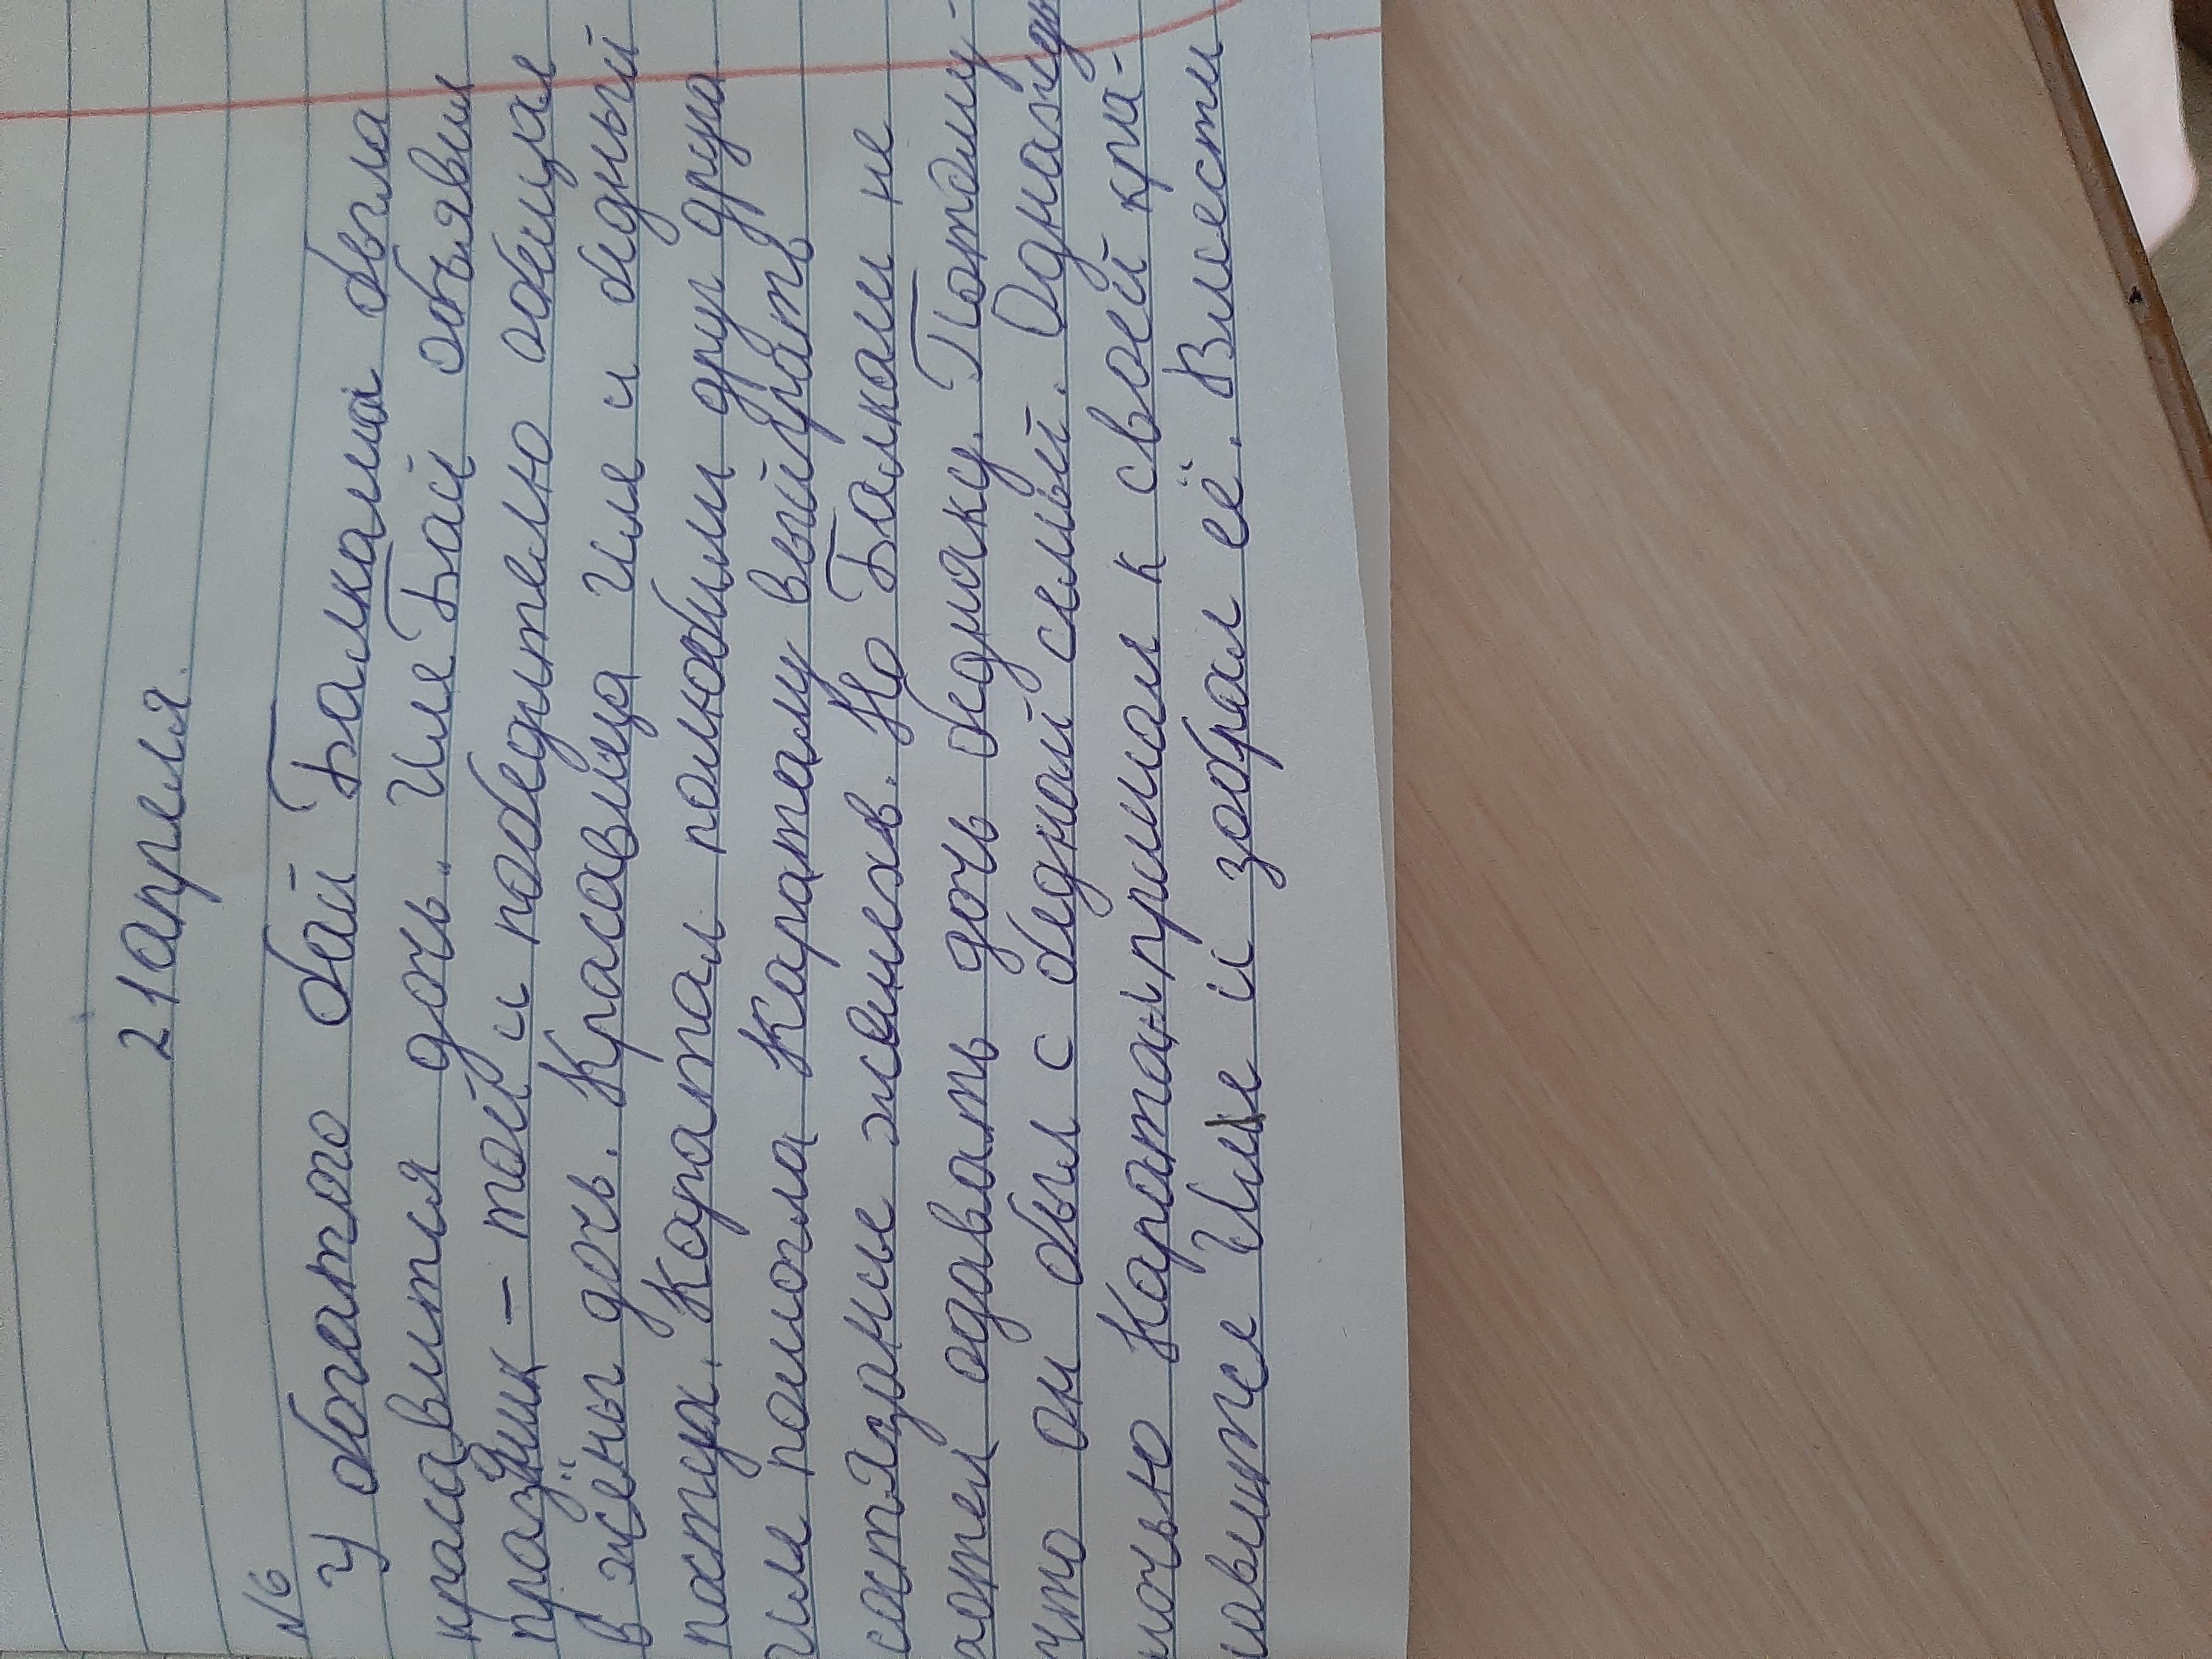 21 апреля.
№6
У богатого бай Балкаша была
красавитя дочь. Иле Бай объявил
праздник - той и победителю обещал
в жёны дочь. Красавица Иле и бедный
пастух. Каратал полюбили друг друга
Иле помогла Караталу выйграть
состязание женихов. Но Балкаш не
хотел одавать дочь бедняку. Потому-
что он был с бедной семьи. Однажды
ночью Каратал пришол к своей кра-
савитсе Иле и забрал её. Вместе